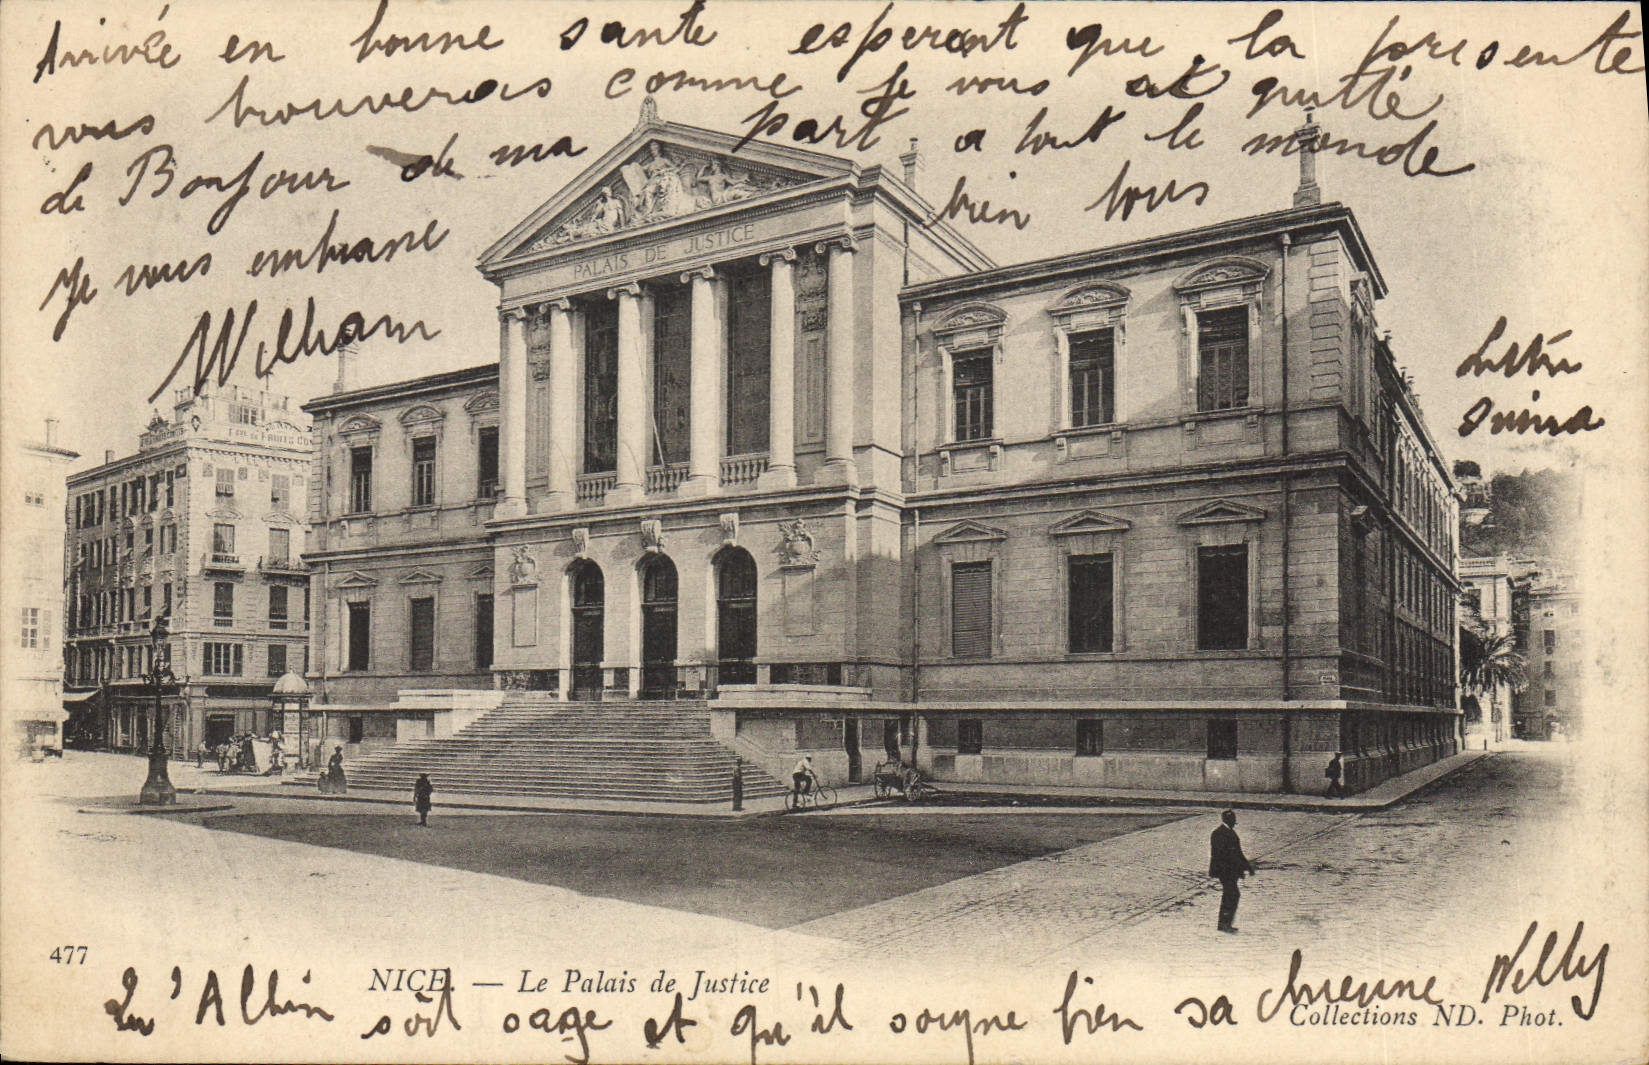 Arrivée en bonne santé esperent que la présente
vous trouveras comme je vous ai quitté
le Bonjour de ma part a tout le monde
bien tous
je vous embrasse
William
PALAIS DE JUSTICE
Lettre
suivra
477
NICE. — Le Palais de Justice
Collections ND. Phot.
Qu'Albin sôit sage et qu'il soigne bien sa chienne Willy